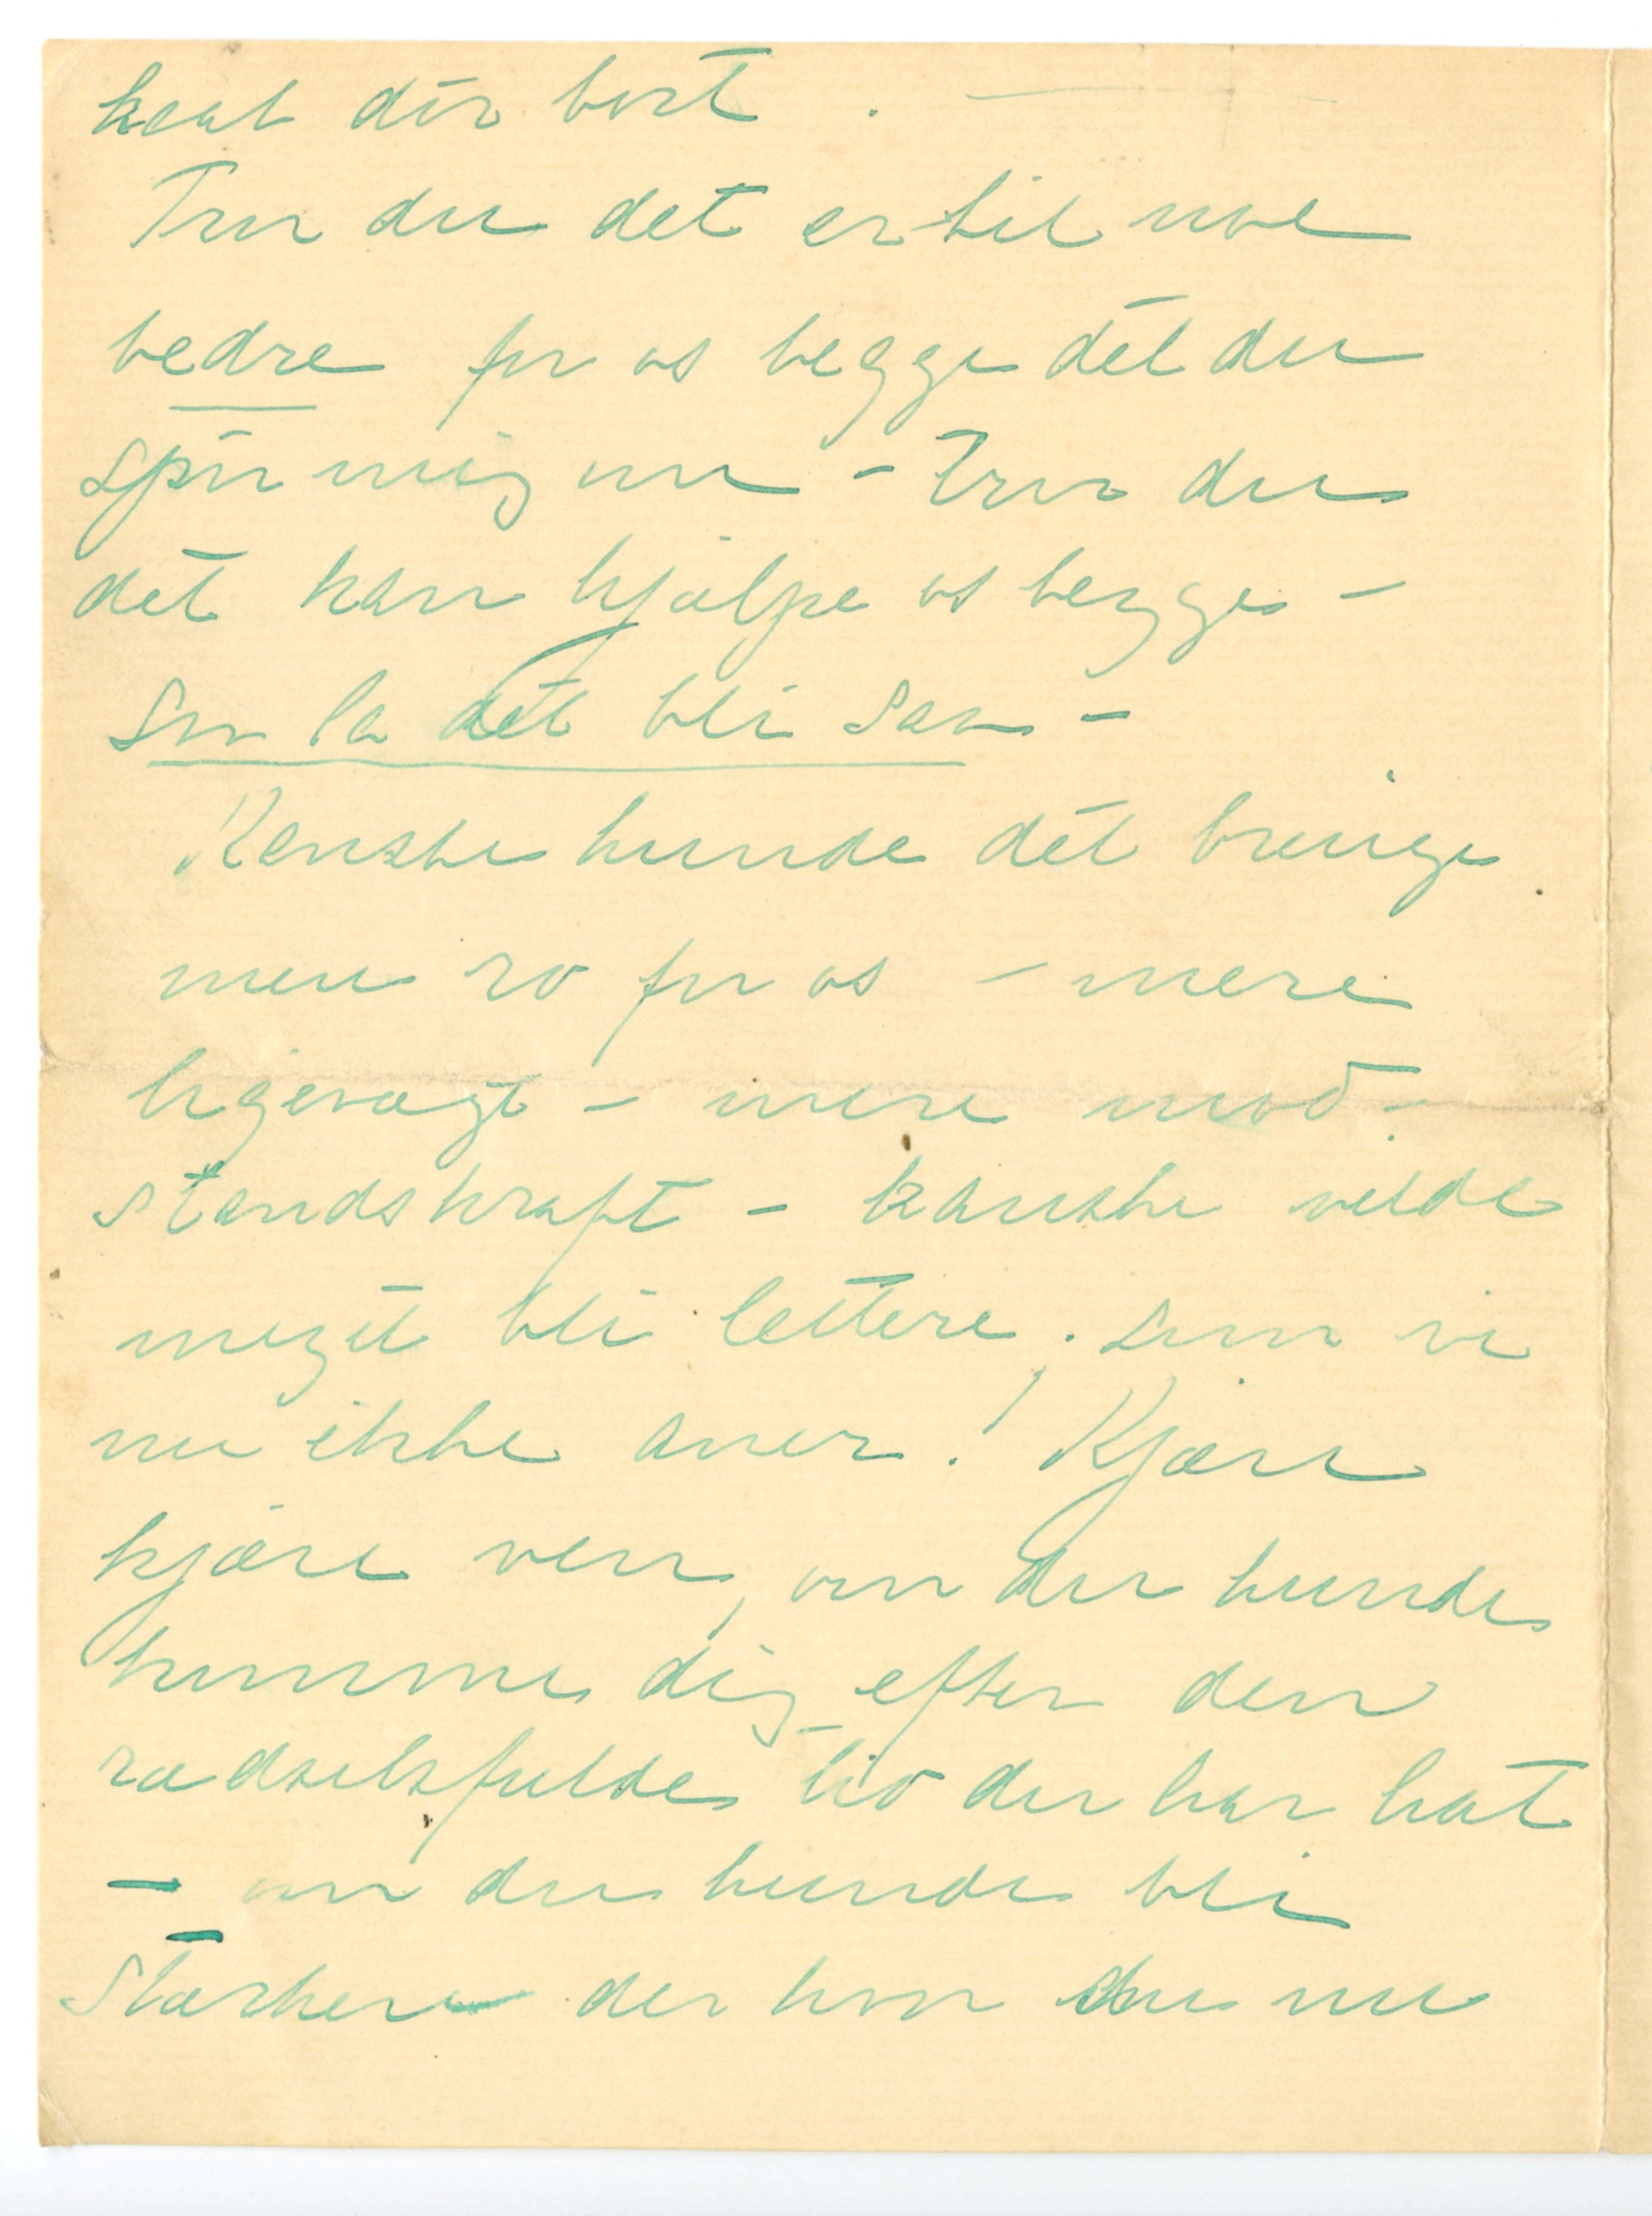 haab dør bort.
Tror du det er til noe
bedre for os begge det du
spør mig om – tror du
det kan hjælpe os begge –
Saa la det bli saa –
Kanske kunde det bringe
mere ro for os – mere
ligevægt – mere mod-
standskraft – kanske vilde
meget bli lettere, som vi
nu ikke aner! Kjære
kjære ven, om du kunde
komme dig efter den
rædselsfulde tid du har hat
– om du kunde bli
stærkere der hvor du nu